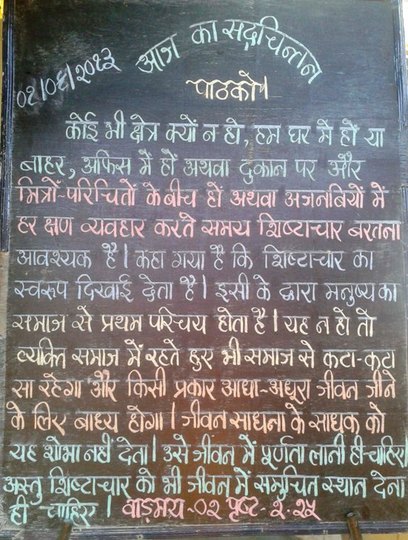 आज का सद्चिन्तन
०१/०६/२०१३
पाठको।
कोई भी क्षेत्र क्यों न हो, हम घर में हों या
बाहर, अफिस में हों अथवा दुकान पर और
मित्रों-परिचितों के बीच हो अथवा अजनबियों में
हर क्षण व्यवहार करते समय शिष्टाचार बरतना
आवश्यक है। कहा गया है कि शिष्टाचार का
स्वरूप दिखाई देता है। इसी के द्वारा मनुष्य का
समाज से प्रथम परिचय होता है। यह न हो तो
व्यक्ति समाज में रहते हुए भी समाज से कटा-कटा
सा रहेगा और किसी प्रकार आधा-अधूरा जीवन जीने
के लिए बाध्य होगा। जीवन साधना के साधक को
यह शोभा नही देता। उसे जीवन में पूर्णता लानी ही चाहिए
अस्तु शिष्टाचार को भी जीवन में समुचित स्थान देना
ही चाहिए। वाङमय-०२ पृष्ट-२.२५